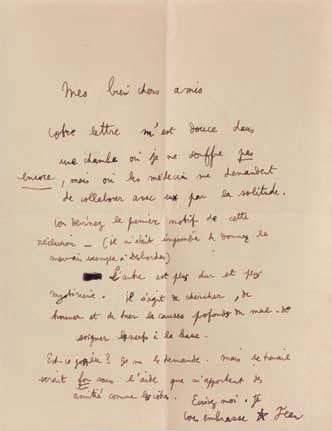 Mes bien chers amis
Votre lettre m'est douce dans
une chambre où je ne souffre pas
encore, mais où les médecins me demandent
de collaborer avec eux par la solitude.
Vous devinez le premier motif de cette
réclusion – (il m'était impossible de donner le
mauvais exemple à Desbordes)
L'autre est plus dur et plus
mystérieux. Il s'agit de chercher, de
trouver et de tuer les causes profondes du mal – de
soigner les nerfs à la base.
Est-ce possible? Je me le demande. mais le travail
serait fou sans l'aide que m'apportent des
amitiés comme les vôtres. Ecrivez moi. Je
vous embrasse Jean